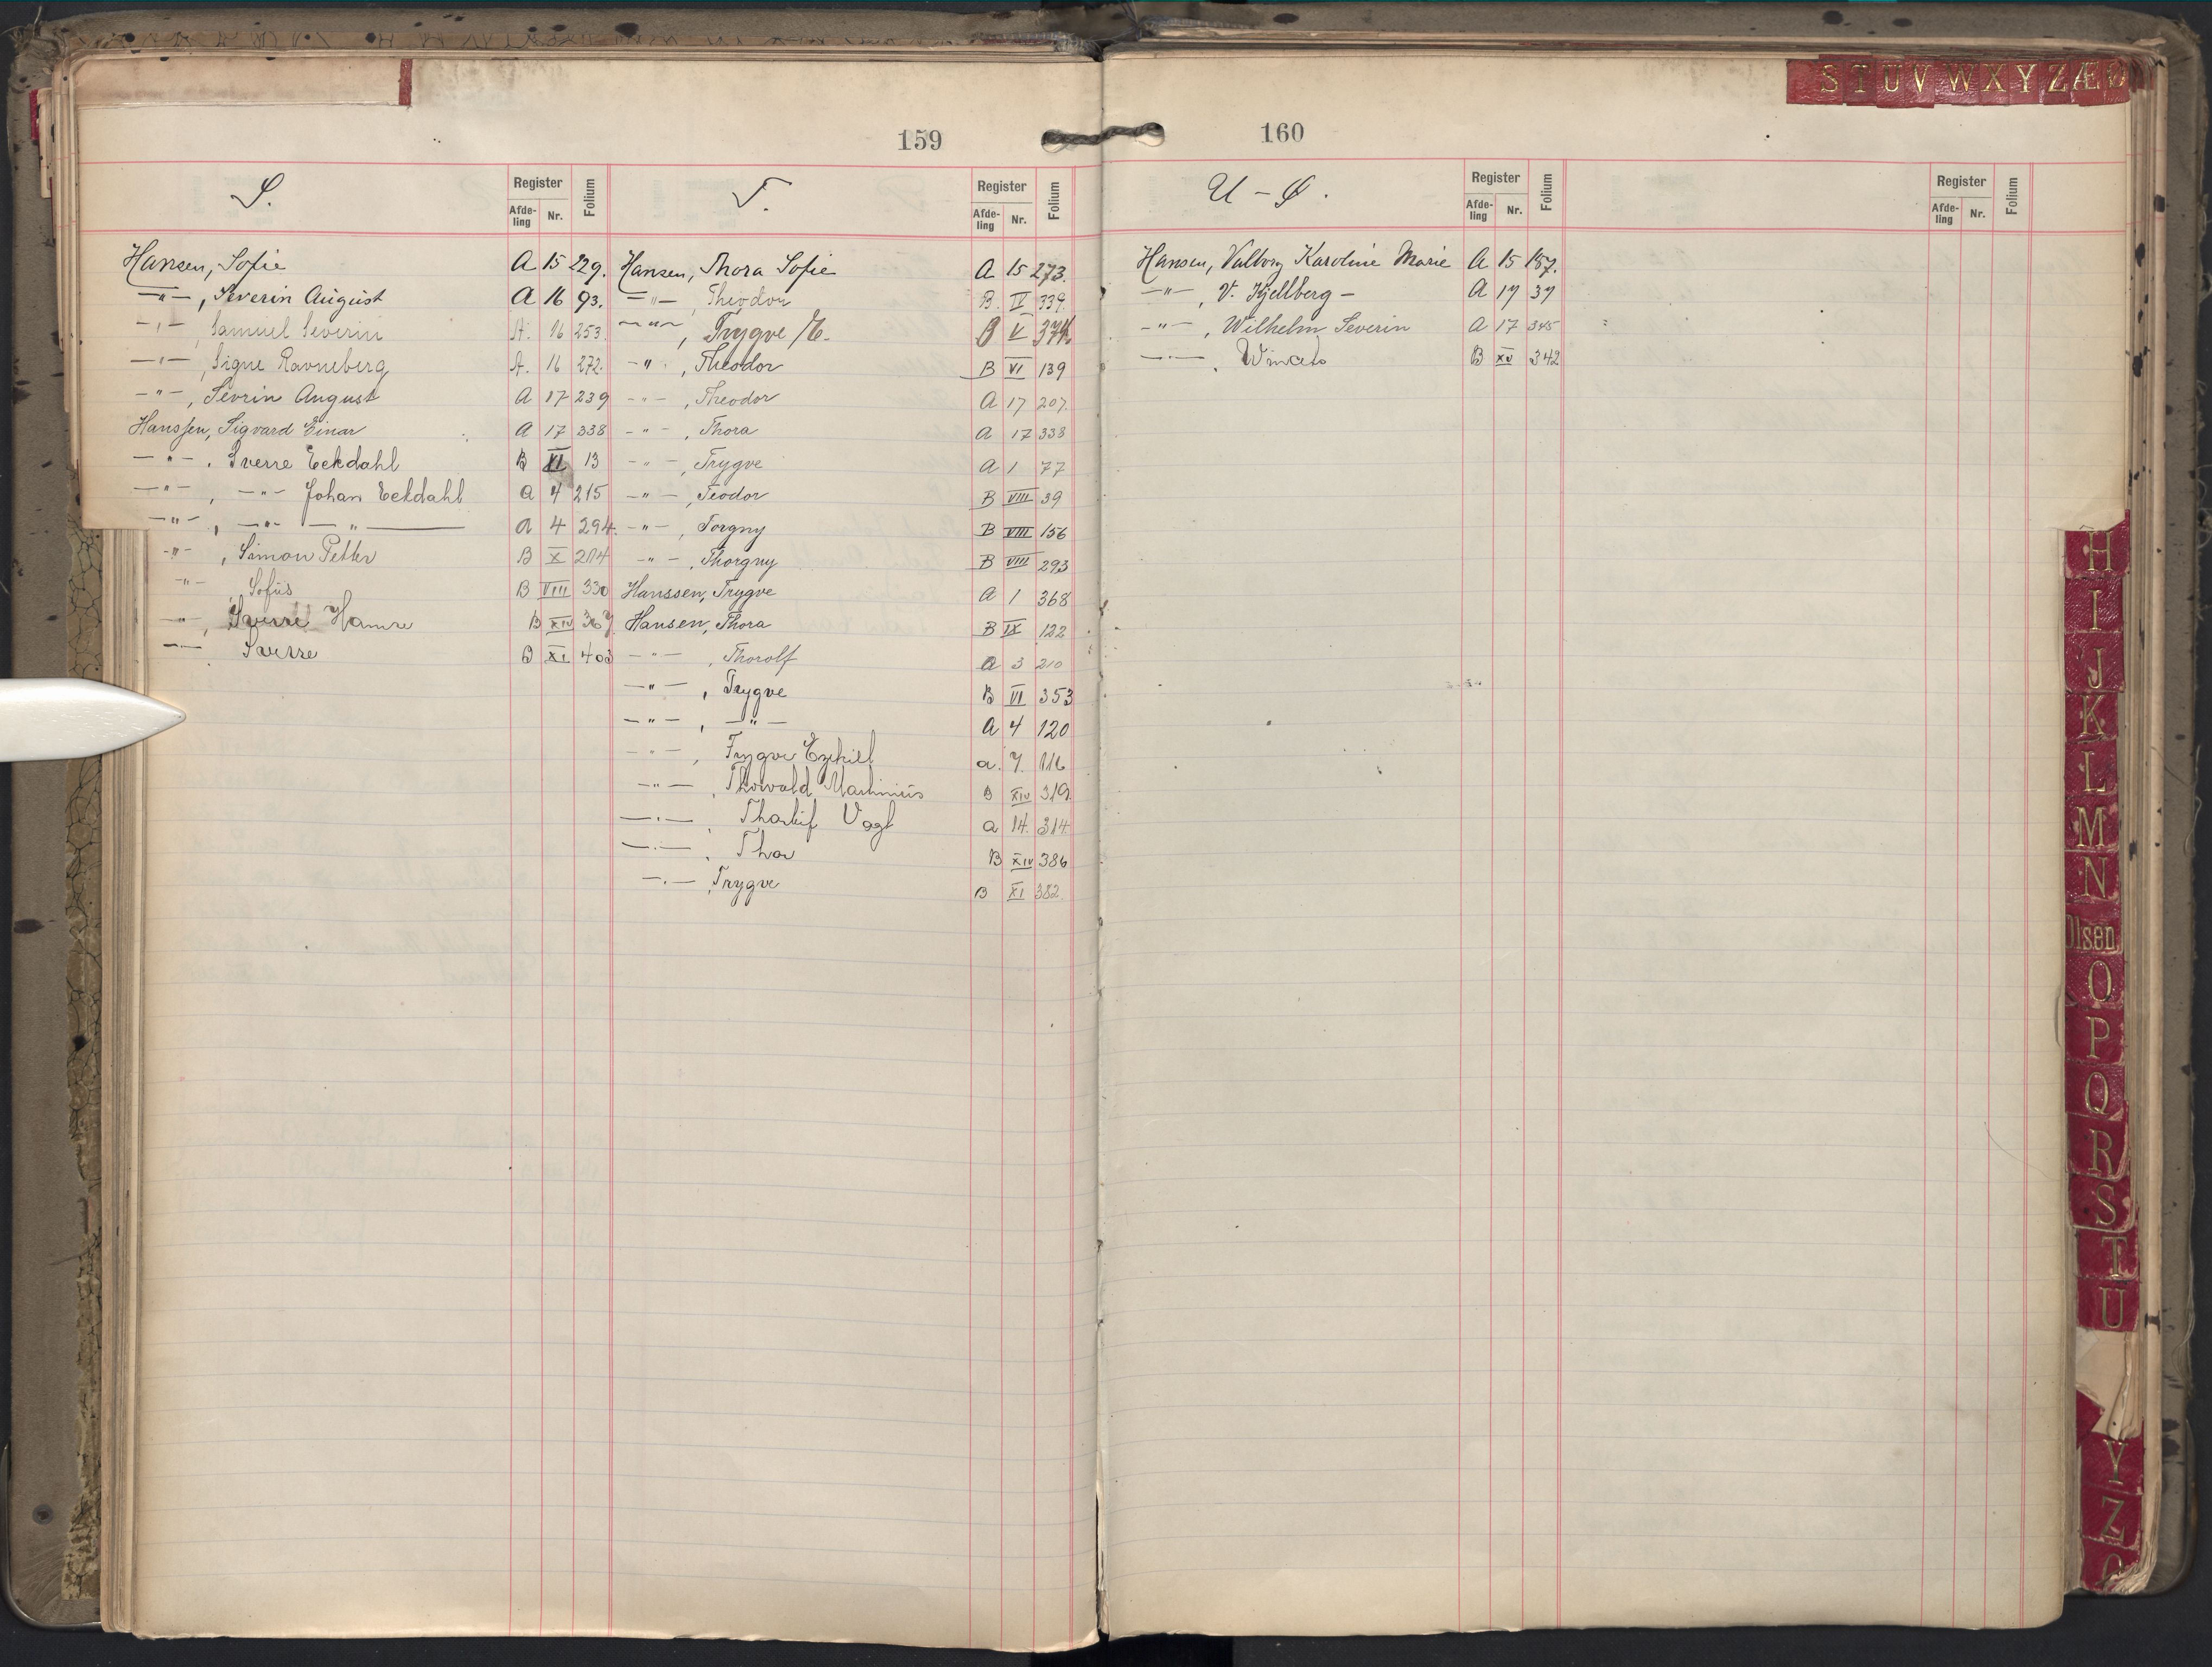 S T U V W X Y Z Æ Ø
159
S.
Register
Afde-
ling
Nr.
Folium
Hansen, Sofie A 15 229.
—"— , Severin August A 16 93.
—"— , Samuel Severin A. 16 253.
—"— , Signe Ravneberg A. 16 272.
—"— , Sevrin August A 17 239
Hanssen, Sigvard Einar A 17 338
—"— , Sverre Eckdahl B VI 13
—"— , —"— Johan Eekdahl A 4 215
—"— , —"— —"— A 4 294.
—"— , Simon Petter B X 214
—"— , Sofus B VIII 330
—"— , Sverre Hamre B XIV 367
—"— Sverre B XI 403
T.
Register
Afde-
ling
Nr.
Folium
Hansen, Thora Sofie A 15 273.
—"— , Theodor B. IV 339.
—"— , Trygve B V 374
—"— , Theodor B VI 139
—"— , Theodor A 17 207.
—"— , Thora A 17 333
—"— , Trygve A 1 77
—"— , Teodor B VIII 39
—"— , Torgny B VIII 156
—"— , Thorgny B VIII 293
Hanssen, Trygve A 1 368
Hansen, Thora B IX 122
—"— , Thorolf A 3 210
—"— , Trygve B VI 353
—"— , —"— A 4 120
—"— , Trygve Ezekiel a. 7. 116
—"— , Thorvald Martinius B XIV 319.
—"— , Thorleif Vogt a 14. 314.
—"— , Thor B XIV 386
—"— , Trygve B XI 382.
160
U - Ø.
Register
Afde-
ling
Nr.
Folium
Hansen, Valborg Karoline Marie A 15 187.
—"— , V. Kjellberg — A 17 37
—"— , Wilhelm Severin A 17 345
—"— , B XV 342
Register
Afde-
ling
Nr.
Folium
H
I
J
K
L
M
N
Olsen
O
P
Q
R
S
T
U
Y
Z